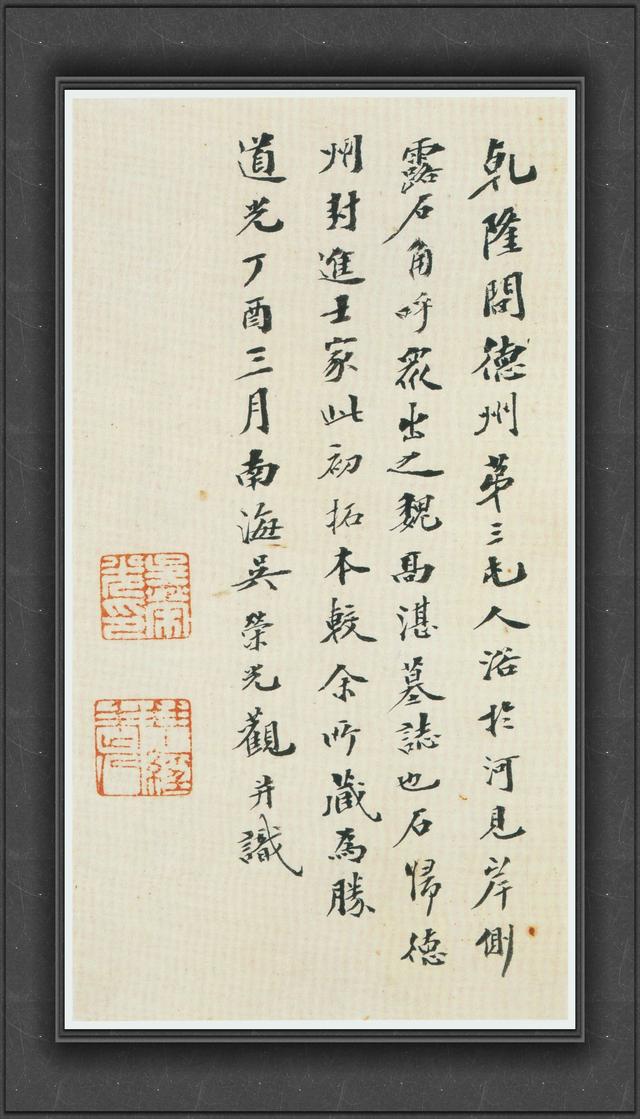 乾隆間德州第三屯人浴於河見岸側
露石角呼眾出之魏髙湛墓誌也石歸德
州封進士家此初拓本較余所藏為勝
道光丁酉三月南海吳榮光觀并識
吳榮光印